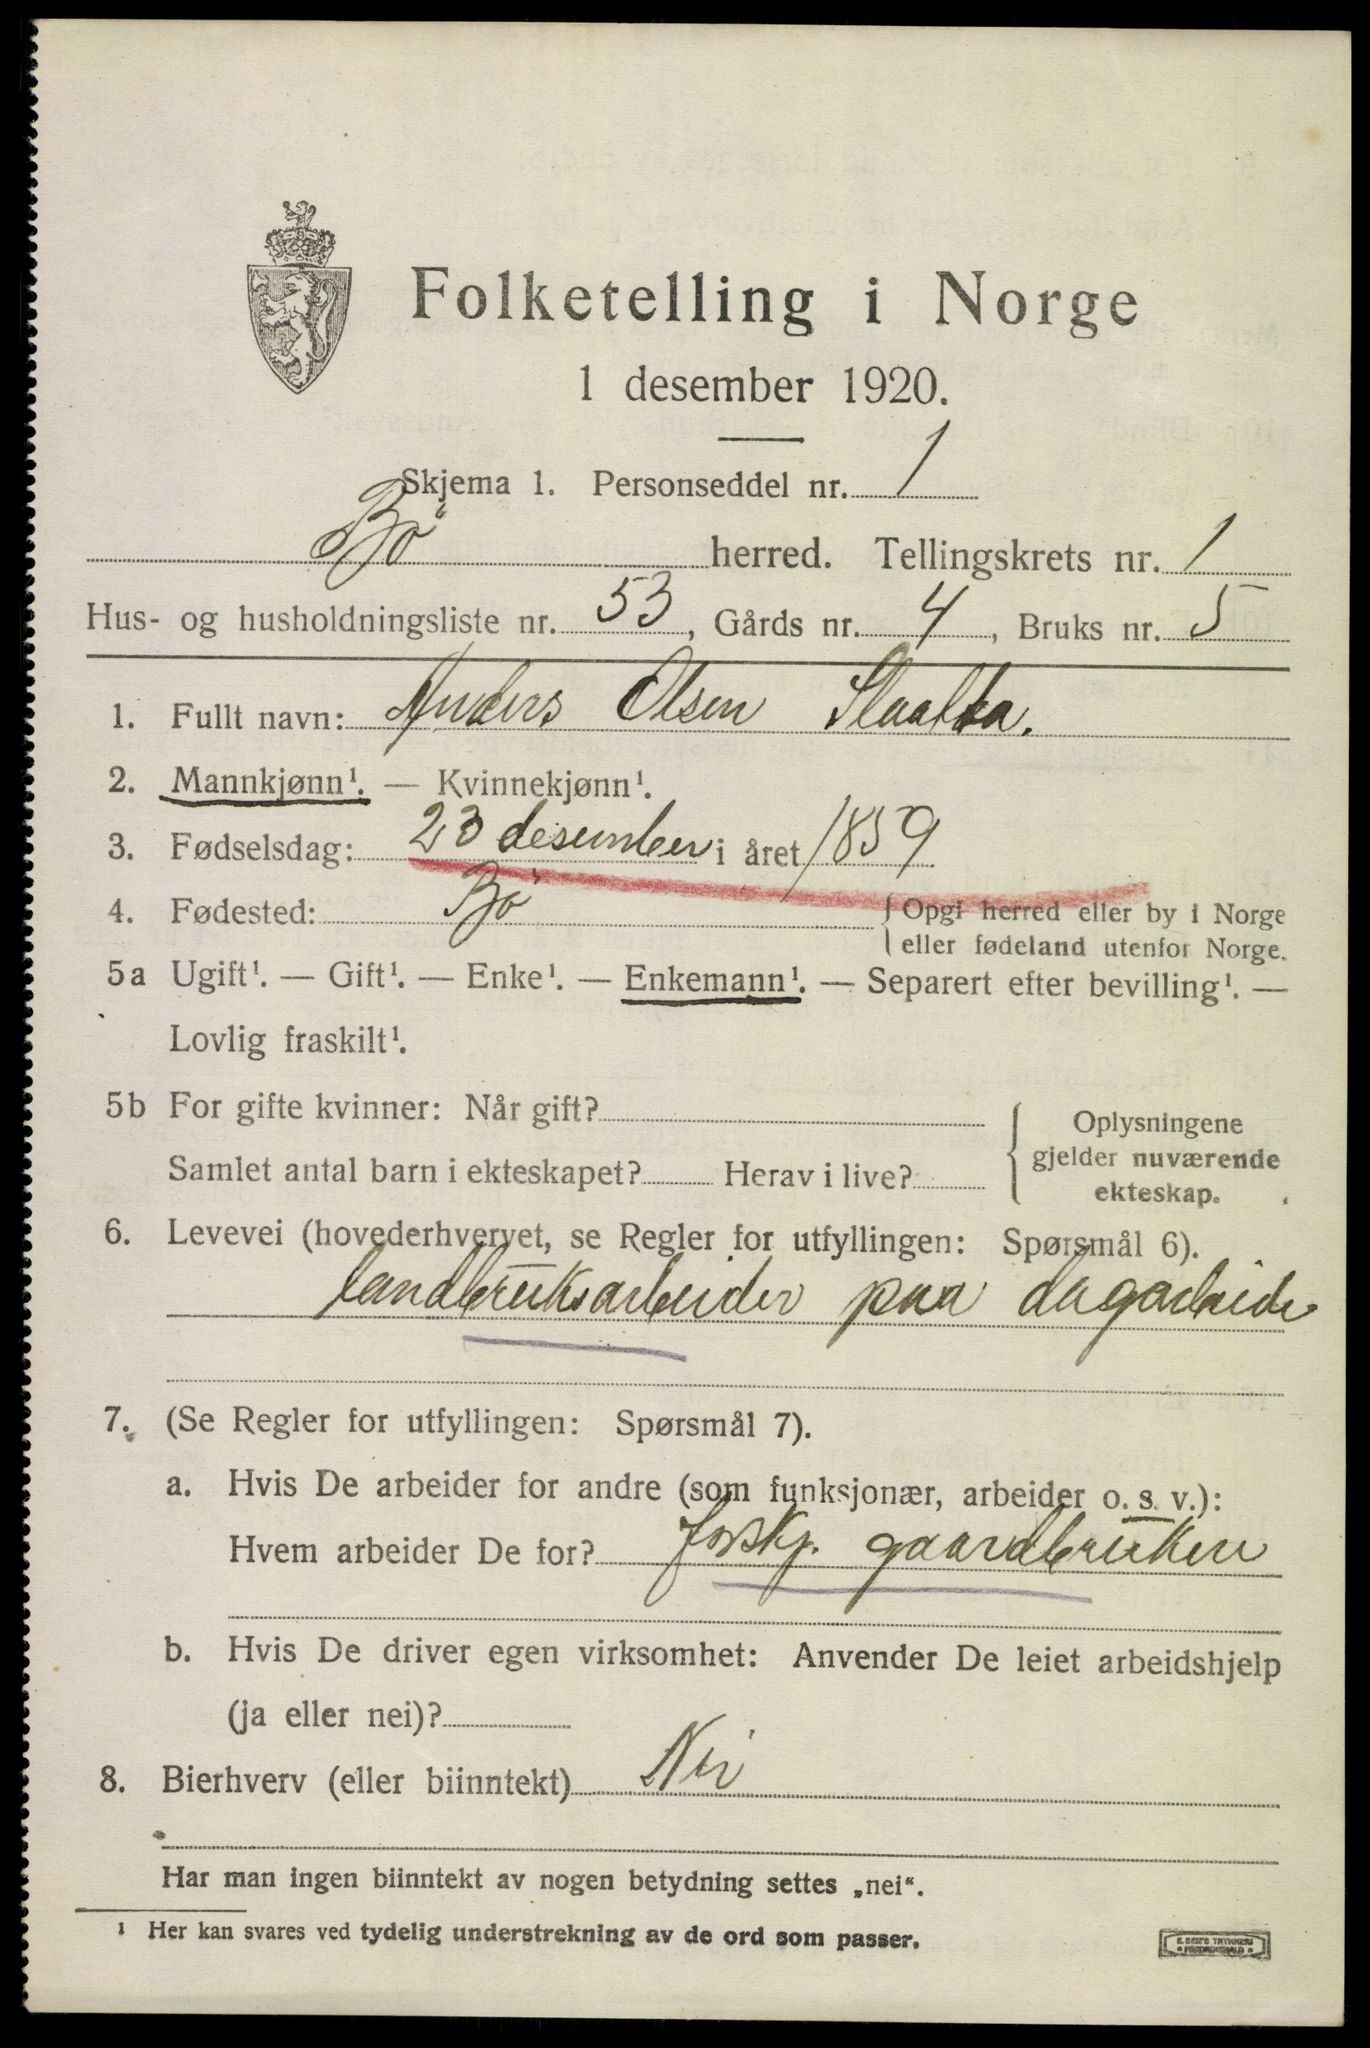 Folketelling i Norge
1 desember 1920.
Skjema 1. Personseddel nr. 1
Bö herred. Tellingskrets nr. 1
Hus- og husholdningsliste nr. 53, Gårds nr. 4, Bruks nr. 5
1. Fullt navn: Anders Olsen Slaatta.
2. Mannkjønn¹. — Kvinnekjønn¹.
3. Fødselsdag: 23 desember i året 1859
4. Fødested: Bö { Opgi herred eller by i Norge
eller fødeland utenfor Norge.
5a Ugift¹. — Gift¹. — Enke¹. — Enkemann¹. — Separert efter bevilling¹. —
Lovlig fraskilt¹.
5b For gifte kvinner: Når gift?
Samlet antal barn i ekteskapet? Herav i live?
Oplysningene
gjelder nuværende
ekteskap.
6. Levevei (hovederhvervet, se Regler for utfyllingen: Spørsmål 6).
landbruksarbeider paa dagarbeide
7. (Se Regler for utfyllingen: Spørsmål 7).
a. Hvis De arbeider for andre (som funksjonær, arbeider o. s. v.):
Hvem arbeider De for? forskj. gaardbrukere
b. Hvis De driver egen virksomhet: Anvender De leiet arbeidshjelp
(ja eller nei)?
8. Bierhverv (eller biinntekt) Nei
Har man ingen biinntekt av nogen betydning settes „nei“.
¹ Her kan svares ved tydelig understrekning av de ord som passer.